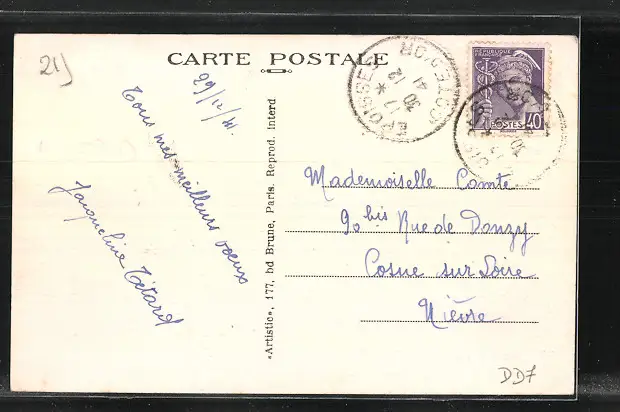 21)
CARTE POSTALE
29/12/41.
Tous mes meilleurs voeux
Jacqueline Tétard
«Artistic», 177, bd Brune, Paris. Reprod. Interd
EPOISSES
CÔTE-D'OR
17 *
30 12
41
RÉPUBLIQUE FRANÇAISE
POSTES 40
Mademoiselle Comte
90 bis Rue de Donzy
Cosne sur Loire
Nièvre
DD7